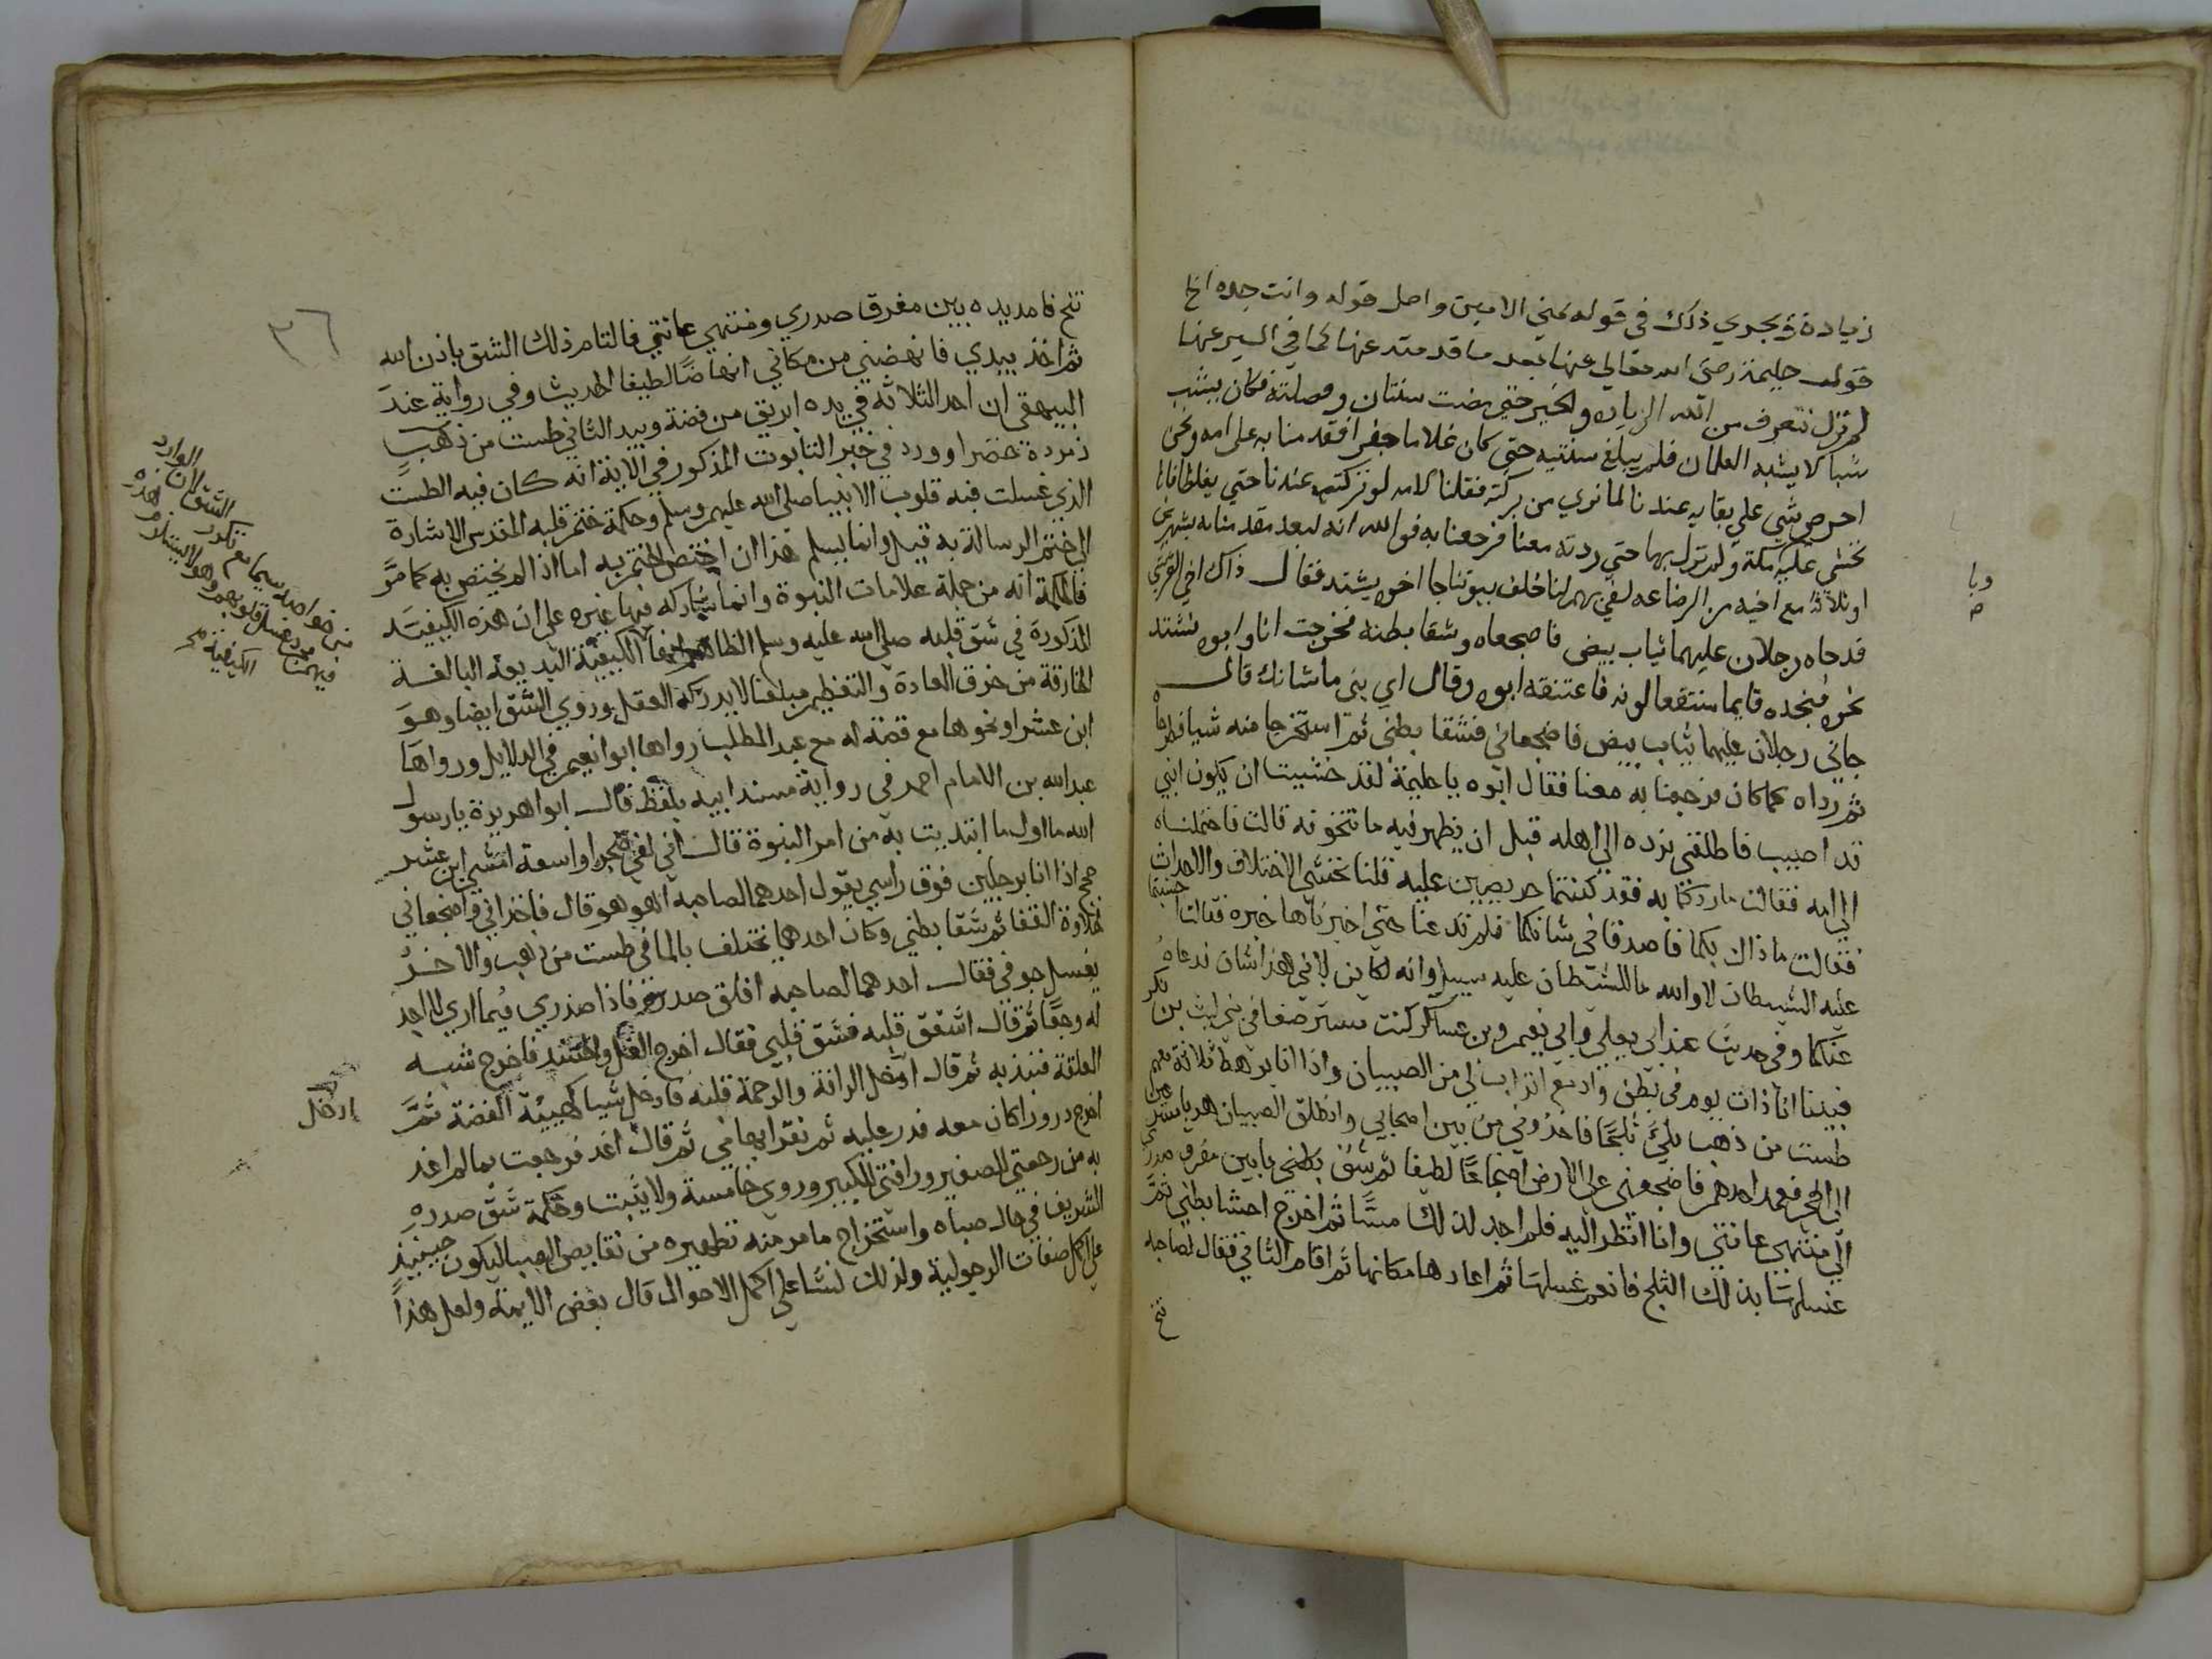 زيادة ويجري ذلك في قوله بمني الامين واصل قوله وانت جده الخ
قوله حليمة رضي الله تعالي عنها بعد ما قدمته عنها كما في السير عنها
لم نزل نتعرف من الله الزياده والخير حتي مضت سنتان وفصلته فكان يشب
شبابا لا يشبه الغلمان فلم يبلغ سنتيه حتي كان غلاما جفرا فقدمنا به علي امه ونحن
احرص شي علي بقايه عندنا لما نري من بركته فقلنا لامه لو تركتيه عندنا حتي يغلظ فانا
نخشي عليه مكة ولم نزل بها حتي ردته معنا فرجعنا به فوالله انه لبعد مقدمنا به بشهرين
او ثلاثة مع اخيه من الرضاعه لفي بهم لنا خلف بيوتنا جا اخوه يشتد فقال ذاك اخي القرشي
قد جاه رجلان عليهما ثياب بيض فاضجعاه وشقا بطنه فخرجت انا وابوه نشتد
نحوه فنجده قايما منتقعا لونه فاعتنقه ابوه وقال اي بني ما شانك قال
جاني رجلان عليهما ثياب بيض فاضجعاني فشقا بطني ثم استخرجا منه شيا فطرحاه
ثم رداه كما كان فرجعنا به معنا فقال ابوه يا حليمة لقد خشيت ان يكون ابني
قد اصيب فاطلقي نرده الي اهله قبل ان يظهر فيه ما نتخوفه قالت فاحتملناه
الي امه فقالت ما ردكما به فقد كنتما حريصين عليه قلنا نخشي الاختلاف والاحداث
فقالت ما ذاك بكما فاصدقاني شانكما فلم تدعنا حتي اخبرناها خبره فقالت اخشيتما
عليه الشيطان لا والله ما للشيطان عليه سبيل وانه لكاين لابني هذا شان فدعاه
عنكما وفي حديث عند ابي يعلي وابي نعيم وبن عساكر كنت مسترضعا في بني ليث بن بكر
فبينا انا ذات يوم في بطن واد مع اتراب لي من الصبيان واذا انا برهط ثلاثة معهم
طست من ذهب ملئ ثلجا فاخذوني من بين اصحابي وانطلق الصبيان هربا مسرعين
الي الحي فعمد احدهم فاضجعني علي الارض اضجاعا لطيفا ثم شق بطني ما بين مفرق صدري
الي منتهي عانتي وانا انظر اليه فلم اجد لذلك مسا ثم اخرج احشا بطني ثم
غسلها بذلك الثلج فانعم غسلها ثم اعادها مكانها ثم اقام الثاني فقال لصاحبه
تنح
وبا
٣٦
تنح فامر يده بين مفرق صدري ومنتهي عانتي فالتام ذلك الشق باذن الله
ثم اخذ بيدي فانهضني من مكاني انهاضا لطيفا الحديث وفي رواية عند
البيهقي ان احد الثلاثة في يده ابريق من فضة وبيد الثاني طست من ذهب
زمردة خضرا وورد في خبر التابوت المذكور في الاية انه كان فيه الطست
الذي غسلت فيه قلوب الانبيا صلي الله عليهم وسلم وحكمة ختم قلبه المقدس الاشارة
الي ختم الرسالة به قيل وانما يسلم هذا ان اختص الختم به اما اذا لم يختص به كما مر
فالحكمة انه من جملة علامات النبوة وانما شاركه فيها غيره علي ان هذه الكيفية
المذكورة في شق قلبه صلي الله عليه وسلم الظاهر انها الكيفية البديعة البالغة
الخارقة من خرق العادة والتعظيم مبلغا لا يدركه العقل وروي الشق ايضا وهو
ابن عشر او نحوها مع قصة له مع عبد المطلب رواها ابوا نعيم في الدلايل ورواها
عبد الله بن الامام احمد في رواية مسند ابيه بلفظ قال ابوا هريرة يا رسول
الله ما اول ما ابتديت به من امر النبوة قال اني لفي صحرا واسعة امشي ابن عشر
حجج اذا انا برجلين فوق راسي يقول احدهما لصاحبه اهو هو قال فاخذاني فاضجعاني
لحلاوة القفا ثم شقا بطني وكان احدهما يختلف بالما في طست من ذهب والاخر
يغسل جوفي فقال احدهما لصاحبه افلق صدره فاذا صدري فيما اري لا اجد
له وجعا ثم قال اشقق قلبه فشق قلبي فقال اخرج الغل والحسد فاخرج شبه
العلقة فنبذ به ثم قال ادخل الرافة والرحمة قلبه فادخل شيا كهيئة الفضة ثم
اخرج درورا كان معه فدر عليه ثم نقر ابهامي ثم قال اغد فرجعت بما لم اغد
به من رحمتي للصغير ورافتي للكبير وروي خامسة ولا يثبت وحكمة شق صدره
الشريف في حال صباه واستخراج ما مر منه تطهيره من نقايص الصبا ليكون حينيذ
علي اكمل صفات الرجولية ولذلك نشا علي اكمل الاحوال قال بعض الايمة ولعل هذا
الشق لان الوارد
الكيفية صح
ادخل